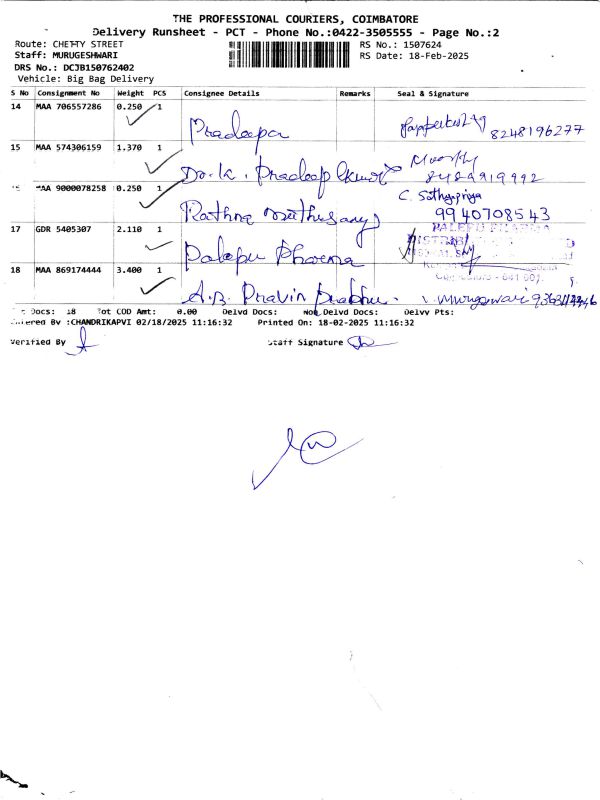 THE PROFESSIONAL COURIERS, COIMBATORE
Delivery Runsheet - PCT - Phone No.:0422-3505555 - Page No.:2
Route: CHETTY STREET RS No.: 1507624
Staff: MURUGESHWARI RS Date: 18-Feb-2025
DRS No.: DCJB150762402
Vehicle: Big Bag Delivery
S No Consignment No Weight PCS Consignee Details Remarks Seal & Signature
14 MAA 706557286 0.250 1 Pradeepa 8248196277
15 MAA 574306159 1.370 1 Dr.K. Pradeep kumar 8489919992
MAA 9000078258 0.250 1 Rathna Muthusamy C. Sathyapriya 9940708543
17 GDR 5405307 2.110 1 Palepu Pharma PALEPU PHARMA
18 MAA 869174444 3.400 1 A.B. Pravin Prabhu.
Docs: 18 Tot COD Amt: 0.00 Delvd Docs: Not Delvd Docs: Delvy Pts:
Entered By :CHANDRIKAPVI 02/18/2025 11:16:32 Printed On: 18-02-2025 11:16:32
Verified By Staff Signature